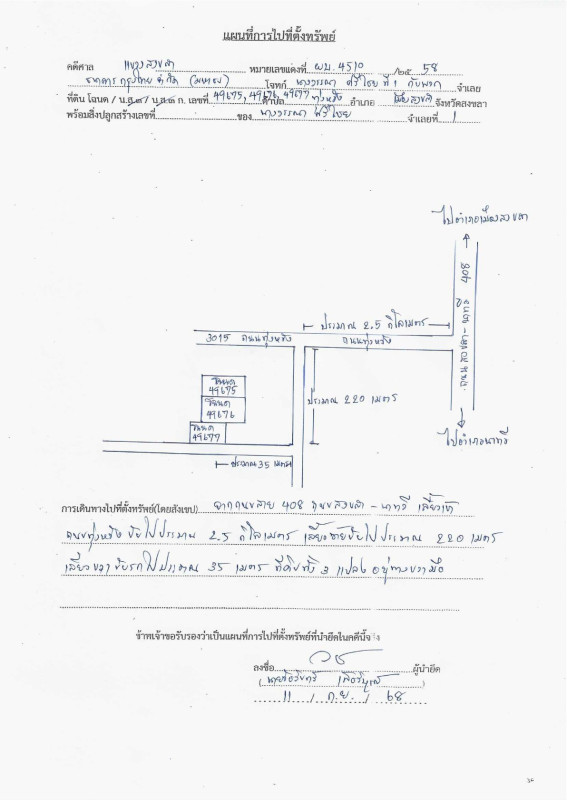 แผนที่การไปที่ตั้งทรัพย์
คดีศาล แขวงสงขลา หมายเลขแดงที่ ผบ. 4510 /๒๕ 58
ธนาคารกรุงไทย จำกัด (มหาชน) โจทก์ นางวรรณา ศรีไชย ที่ 1 กับพวก จำเลย
ที่ดิน โฉนด / น.ส.๓ / น.ส.๓ ก. เลขที่ 49675, 49676, 49677 ตำบล ทุ่งหวัง อำเภอ เมืองสงขลา จังหวัดสงขลา
พร้อมสิ่งปลูกสร้างเลขที่ ของ นางวรรณา ศรีไชย จำเลยที่ 1
ไปอำเภอเมืองสงขลา
ถนน สงขลา - นาทวี 408
ประมาณ 2.5 กิโลเมตร
3015 ถนนทุ่งหวัง ถนนทุ่งหวัง
โฉนด
49675
โฉนด
49676
โฉนด
49677
ประมาณ 220 เมตร
ไปอำเภอนาทวี
ประมาณ 35 เมตร
การเดินทางไปที่ตั้งทรัพย์(โดยสังเขป) จากถนนสาย 408 ถนนสงขลา - นาทวี เลี้ยวเข้า
ถนนทุ่งหวัง ขับไปประมาณ 2.5 กิโลเมตร เลี้ยวซ้ายขับไปประมาณ 220 เมตร
เลี้ยวขวา ขับรถไปประมาณ 35 เมตร ที่ดินทั้ง 3 แปลง อยู่ทางขวามือ
ข้าพเจ้าขอรับรองว่าเป็นแผนที่การไปที่ตั้งทรัพย์ที่นำยึดในคดีนี้จริง
ลงชื่อ ผู้นำยึด
11 / ก.ย. / 68